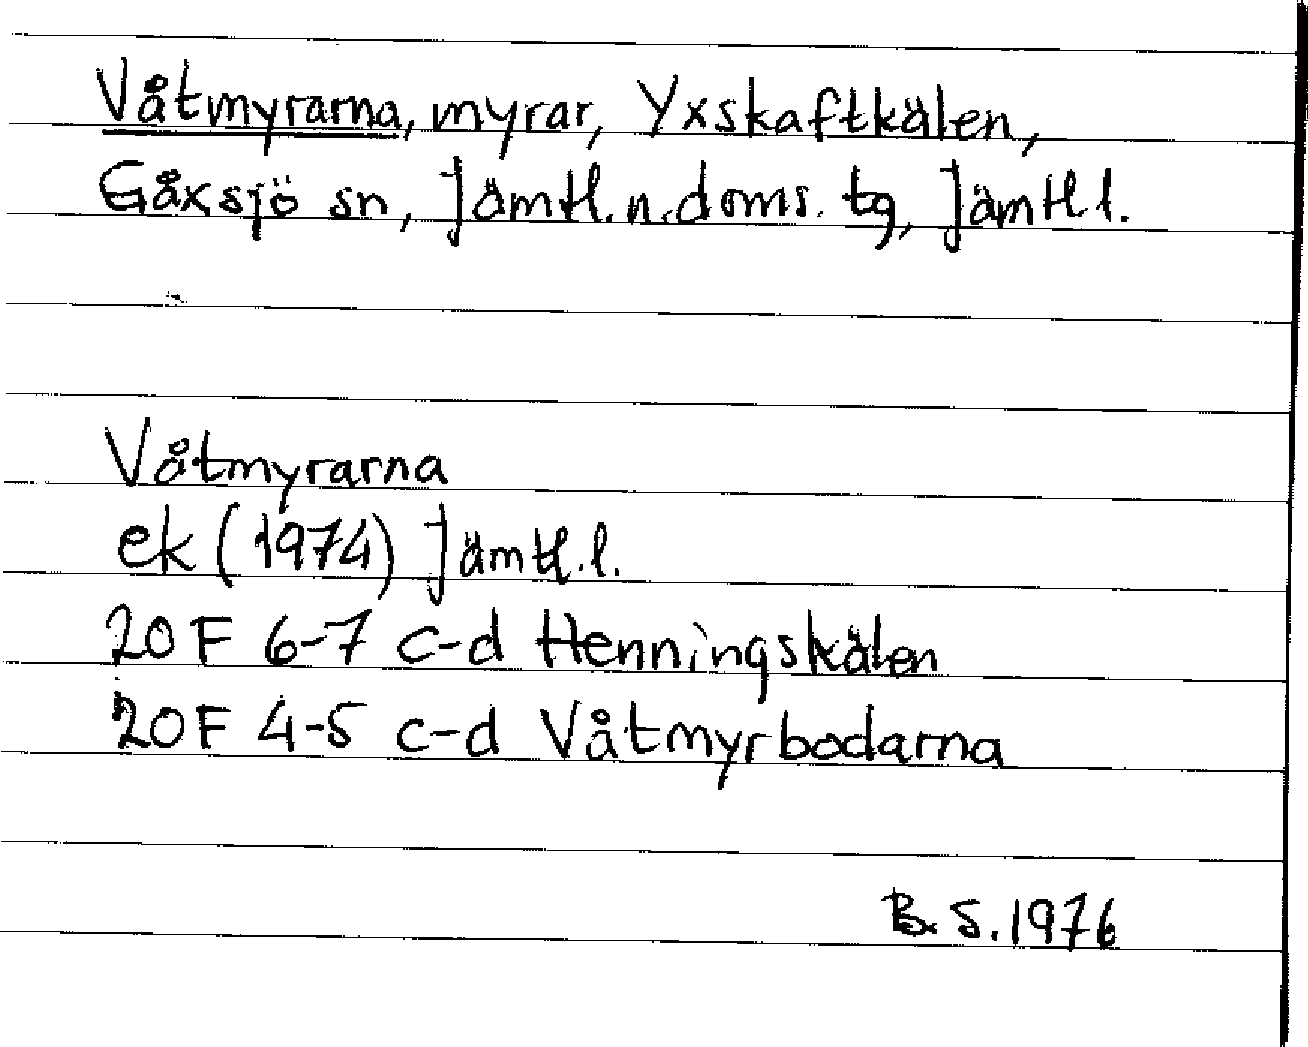 Våtmyrarna, myrar, Yxskaftkälen,
Gåxsjö sn, Jämtl. n. doms. tg, Jämtl l.
Våtmyrarna
ek (1974) Jämtl. l.
20 F 6-7 c-d Henningskälen
20 F 4-5 c-d Våtmyrbodarna
B. S. 1976